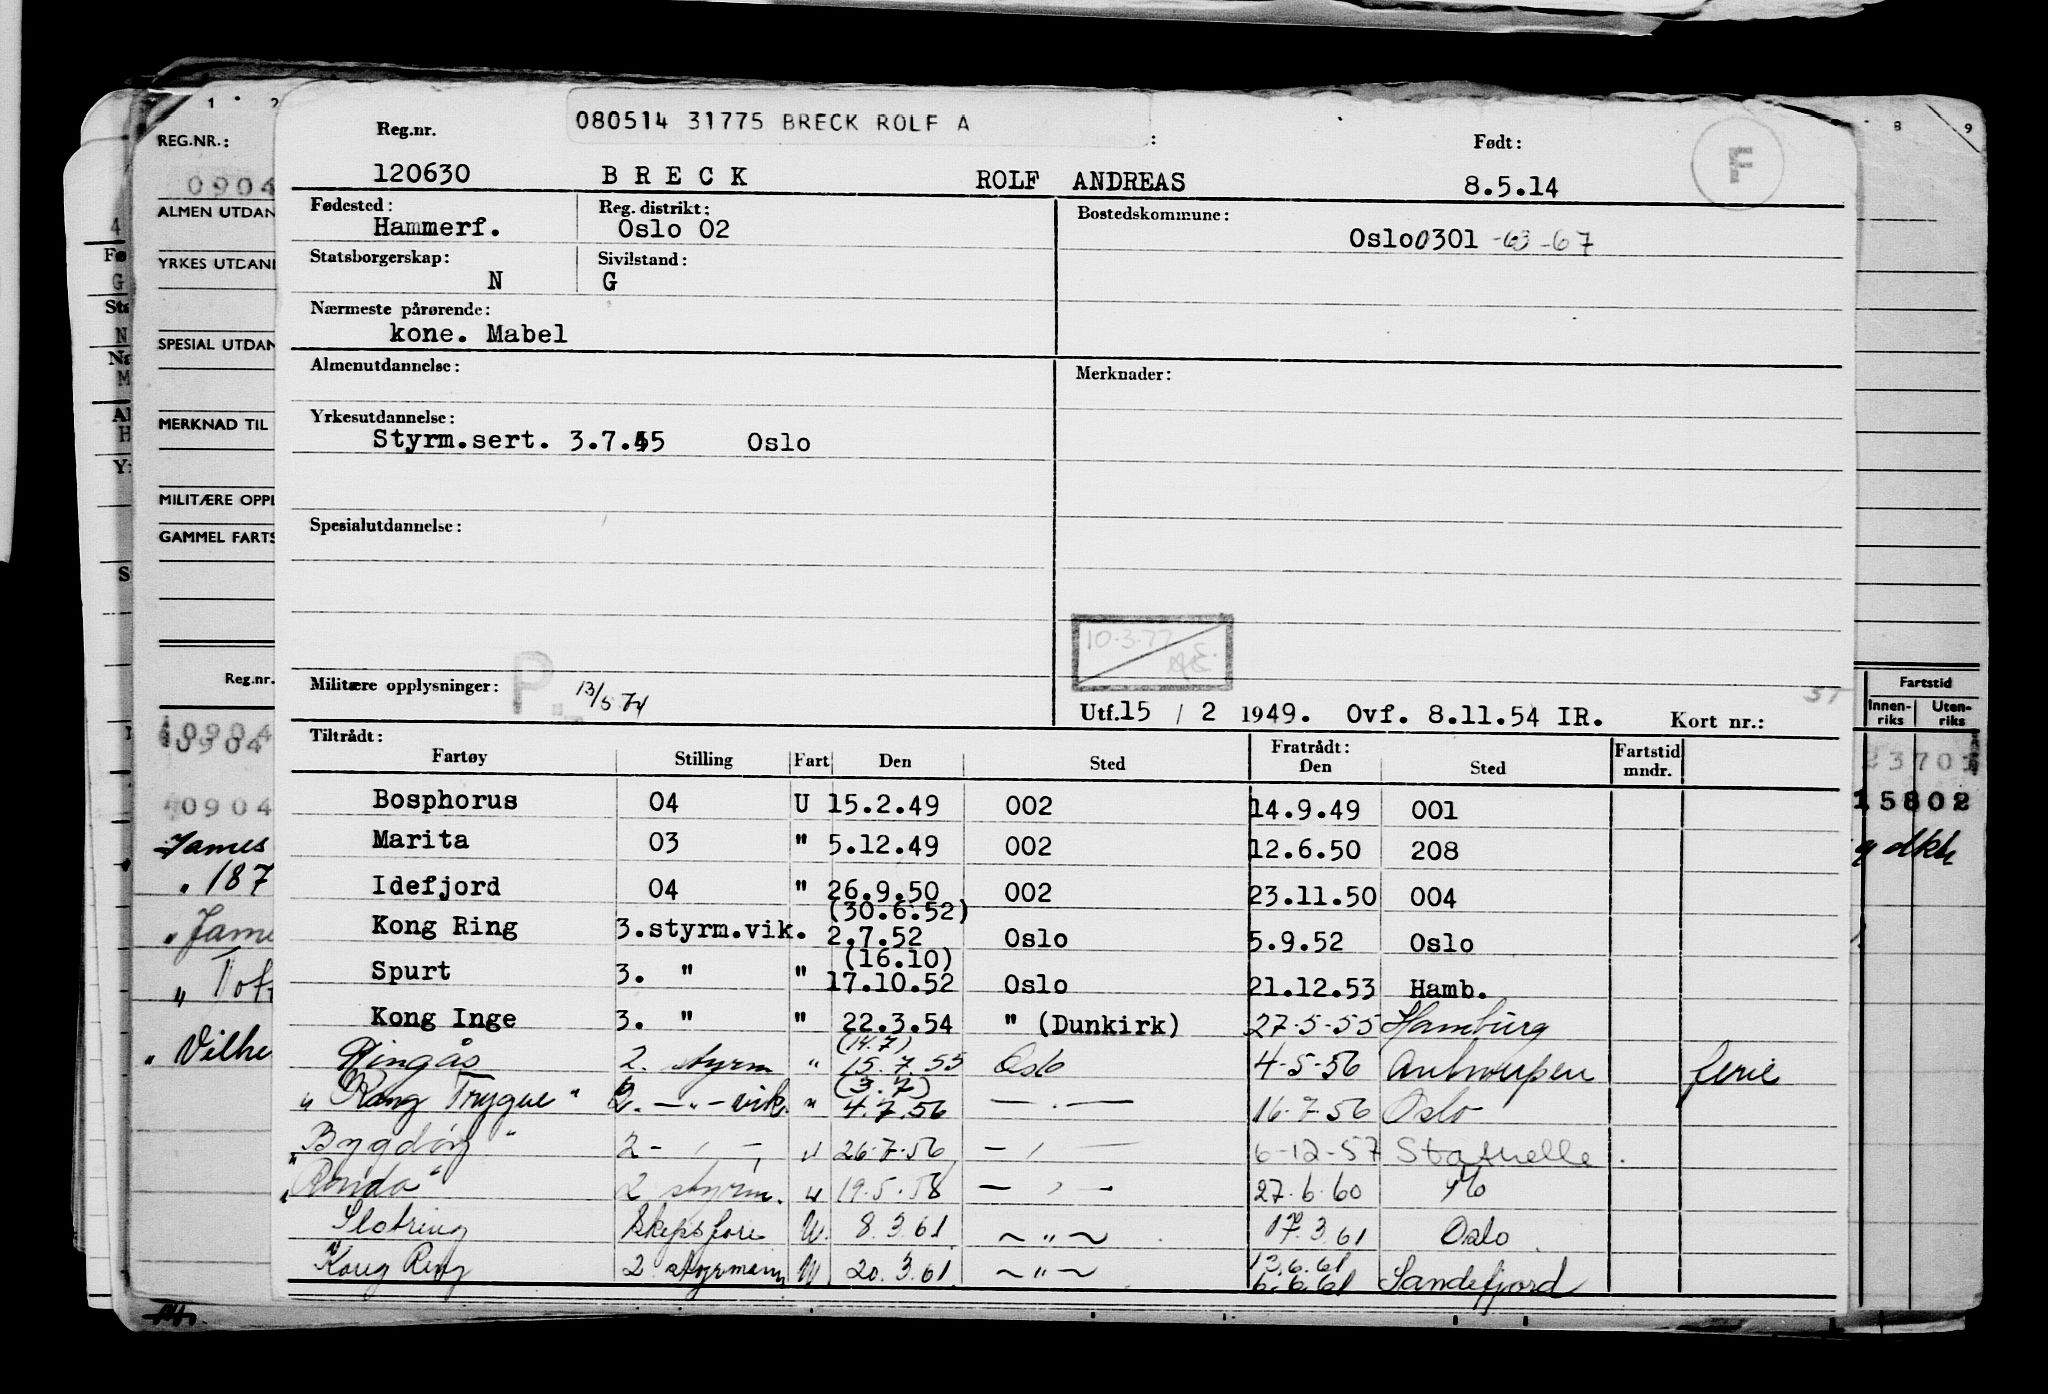 080514 31775 BRECK ROLF A
Reg.nr. Født:
120630 BRECK ROLF ANDREAS 8.5.14 F
Fødested: Reg. distrikt: Bostedskommune:
Hammerf. Oslo 02 Oslo0301 -63-67
Statsborgerskap: Sivilstand:
N G
Nærmeste pårørende:
kone. Mabel
Almenutdannelse: Merknader:
Yrkesutdannelse:
Styrm.sert. 3.7.45 Oslo
Spesialutdannelse:
10.3.77
Militære opplysninger: P. 13/5 74
Utf.15 / 2 1949. Ovf. 8.11.54 IR. Kort nr.:
Tiltrådt: Fratrådt:
Fartøy Stilling Fart Den Sted Den Sted Fartstid mndr.
Bosphorus 04 U 15.2.49 002 14.9.49 001
Marita 03 " 5.12.49 002 12.6.50 208
Idefjord 04 " 26.9.50 002 23.11.50 004
(30.6.52)
Kong Ring 3.styrm.vik. 2.7.52 Oslo 5.9.52 Oslo
(16.10)
Spurt 3. " " 17.10.52 Oslo 21.12.53 Hamb.
Kong Inge 3. " " 22.3.54 " (Dunkirk) 27-5-55 Hamburg
(14.7)
Ringås 2. styrm " 15.7.55 Oslo 4-5-56 Antwerpen ferie
(3.7)
" Kong Trygve " 2. — " — vik. " 4.7.56 — . — 16-7-56 Oslo
"Bygdøy" 2 - , - " 26-7-56 — , — 6-12-57
"Ronda" 2 styrm. " 19.5.58 — , — 27.6.60
Slotring skipsføre U. 8.3.61 ~ " ~ 17.3.61 Oslo
Kong Ring 2 styrmann U 20.3.61 ~ " ~ 13.6.61
6.6.61 Sandefjord
1 2
REG.NR.:
0904
ALMEN UTDAN
YRKES UTDAN
SPESIAL UTDAN
MERKNAD TIL
MILITÆRE OPPL
GAMMEL FARTS
Reg.nr.
40904
40904
James
" 187
" Jame
" Tot
" Vilhe
8 9
Fartstid
Innen-riks Uten-riks
23701
15802